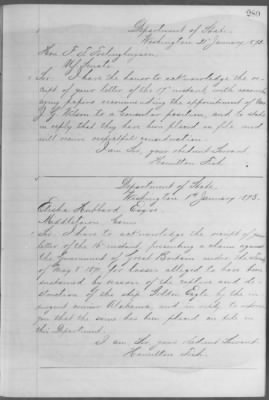 280
Department of State.
Washington 21 January 1873.
Hon. F. T. Frelinghuysen
U.S. Senate
Sir: I have the honor to acknowledge the re-
ceipt of your letter of the 17th instant with accom-
anying papers recommending the appointment of
J. G. Wilson to a Consular position, and to state
in reply that they have been placed on file and
will receive respectful consideration.
I am Sir, your obedient Servant
Hamilton Fish.
Department of State.
Washington January 1873.
Elisha Hubbard Esqre.
Middletown Conn
Sir: I have to acknowledge the receipt of your
letter of the 18 instant, presenting a claim against
the Government of Great Britain under the Treaty
of May 8 1871 for losses alleged to have been
sustained by reason of the capture and de-
struction of the ship Golden Eagle by the in-
surgent cruiser Alabama and in reply to inform
you that the same has been placed on file in
this Department.
I am, Sir, your obedient Servant
Hamilton Fish.